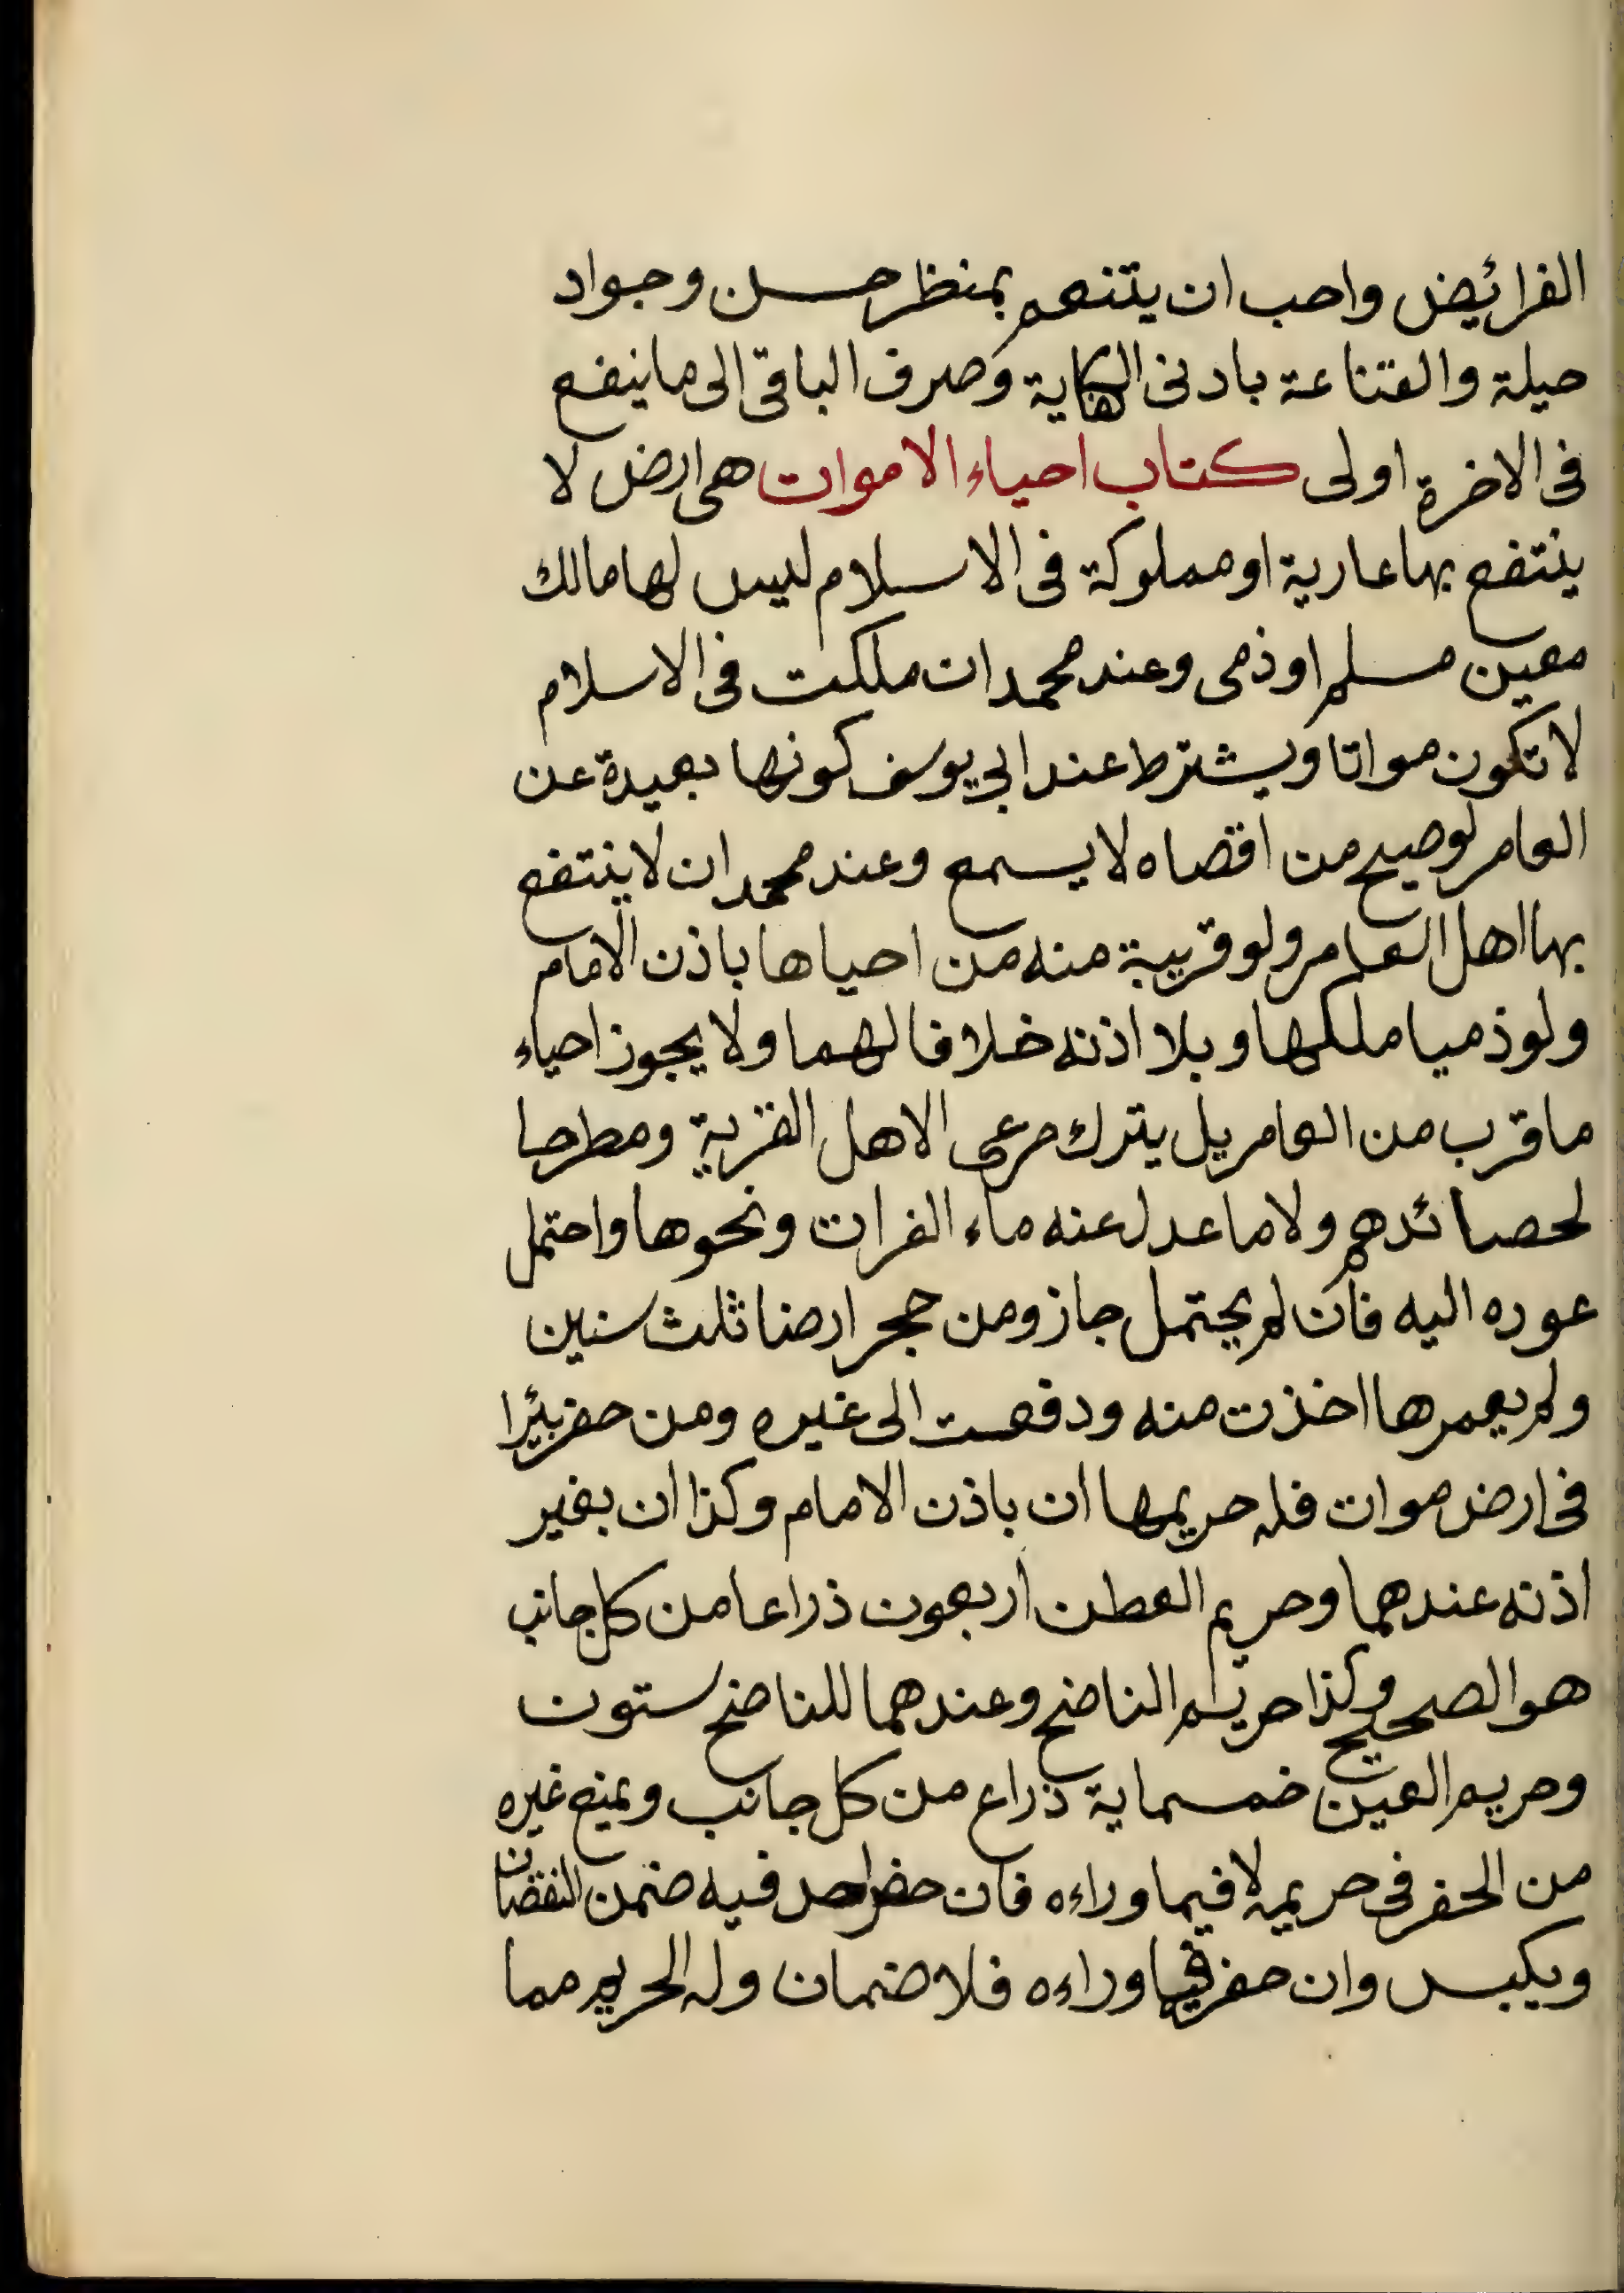 الفرائيض واحب ان يتنعم بمنظر حسن وجواد
حيلة والقتناعة بادنى الكفاية وصرف الباقى الى ما ينفع
فى الاخرة اولى كتاب احياء الاموات هى ارض لا
ينتفع بها عارية او مملوكة فى الاسلام ليس لها مالك
معين مسلم او ذمى وعند محمد ان ملكت فى الاسلام
لا تكون مواتا ويشترط عند ابي يوسف كونها بعيدة عن
العامر لو صيح من اقصاه لا يسمع وعند محمد ان لا ينتفع
بها اهل العامر ولو قريبة منه من احياها باذن الامام
ولو ذميا ملكها وبلا اذنه خلافا لهما ولا يجوز احياء
ما قرب من العامر يل يترك مرعى الاهل القرية ومطرحا
لحصائدهم ولا ما عدل عنه ماء الفرات ونحوها واحتمل
عوده اليه فان لم يحتمل جاز ومن حجر ارضا ثلث سنين
ولم يعمرها اخذت منه ودفعت الى غيره ومن حفر بئرا
فى ارض موات فله حريمها ان باذن الامام وكذا ان بغير
اذنه عندهما وحريم العطن اربعون ذراعا من كل جانب
هو الصحيح وكذا حريم الناضح وعندهما للناضح ستون
وحريم العين خمسماية ذراع من كل جانب ويمنع غيره
من الحفر فى حريمه لا فيما وراءه فان حفر احد فيه ضمن النقصان
ويكبس وان حفر فيما وراءه فلا ضمان وله الحريم مما